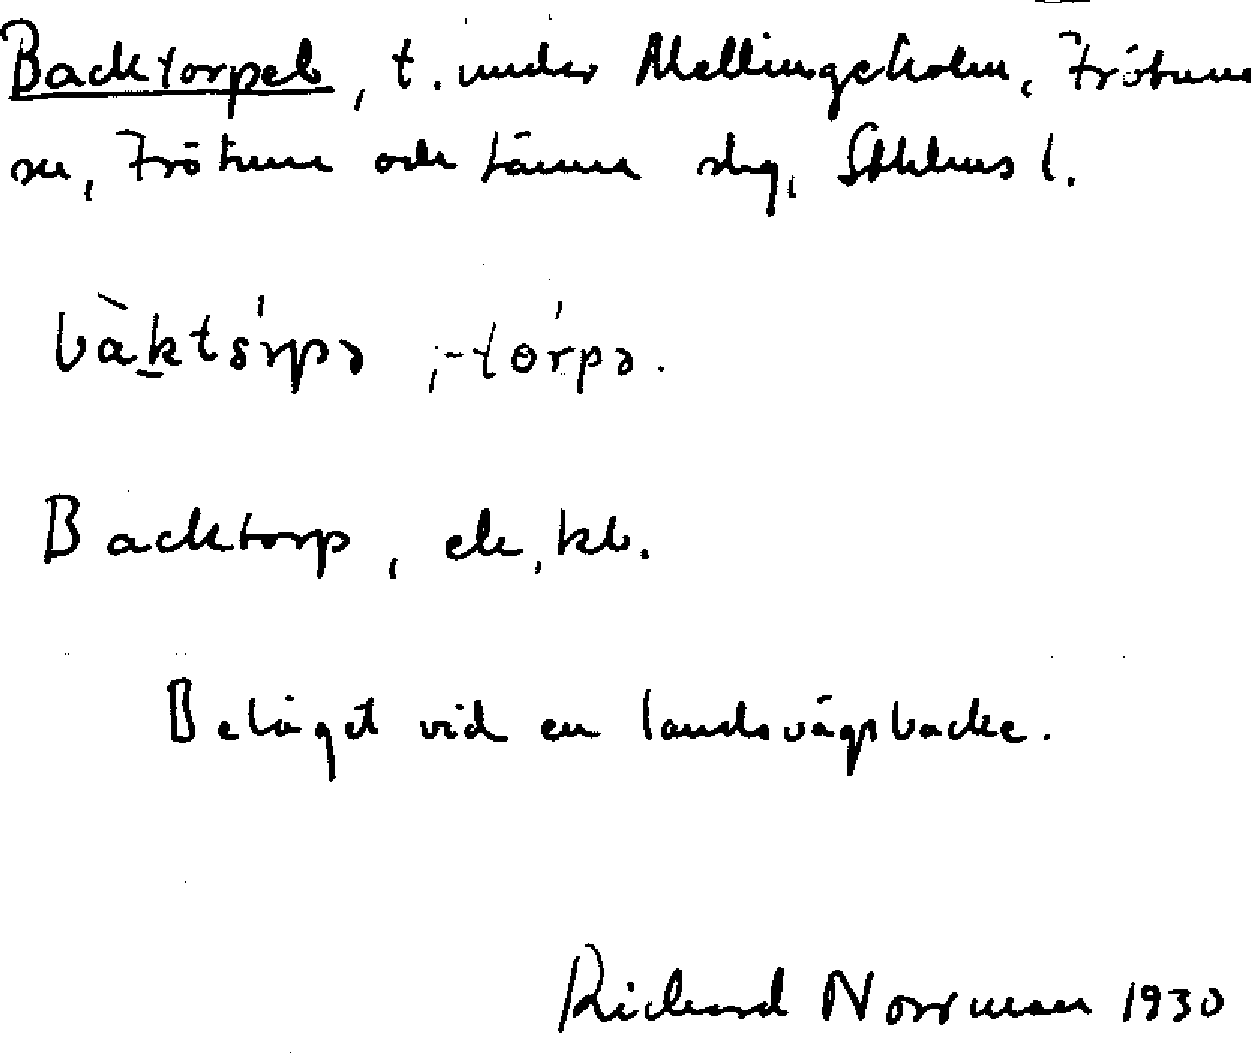 Backtorpet, t. under Mellingeholm, Frötuna
sn, Frötuna och Länna slg, Sthlms l.
bàktǻrpə, -tórpə.
Backtorp, ek, kb.
Beläget vid en landsvägsbacke.
Richard Norrman 1930